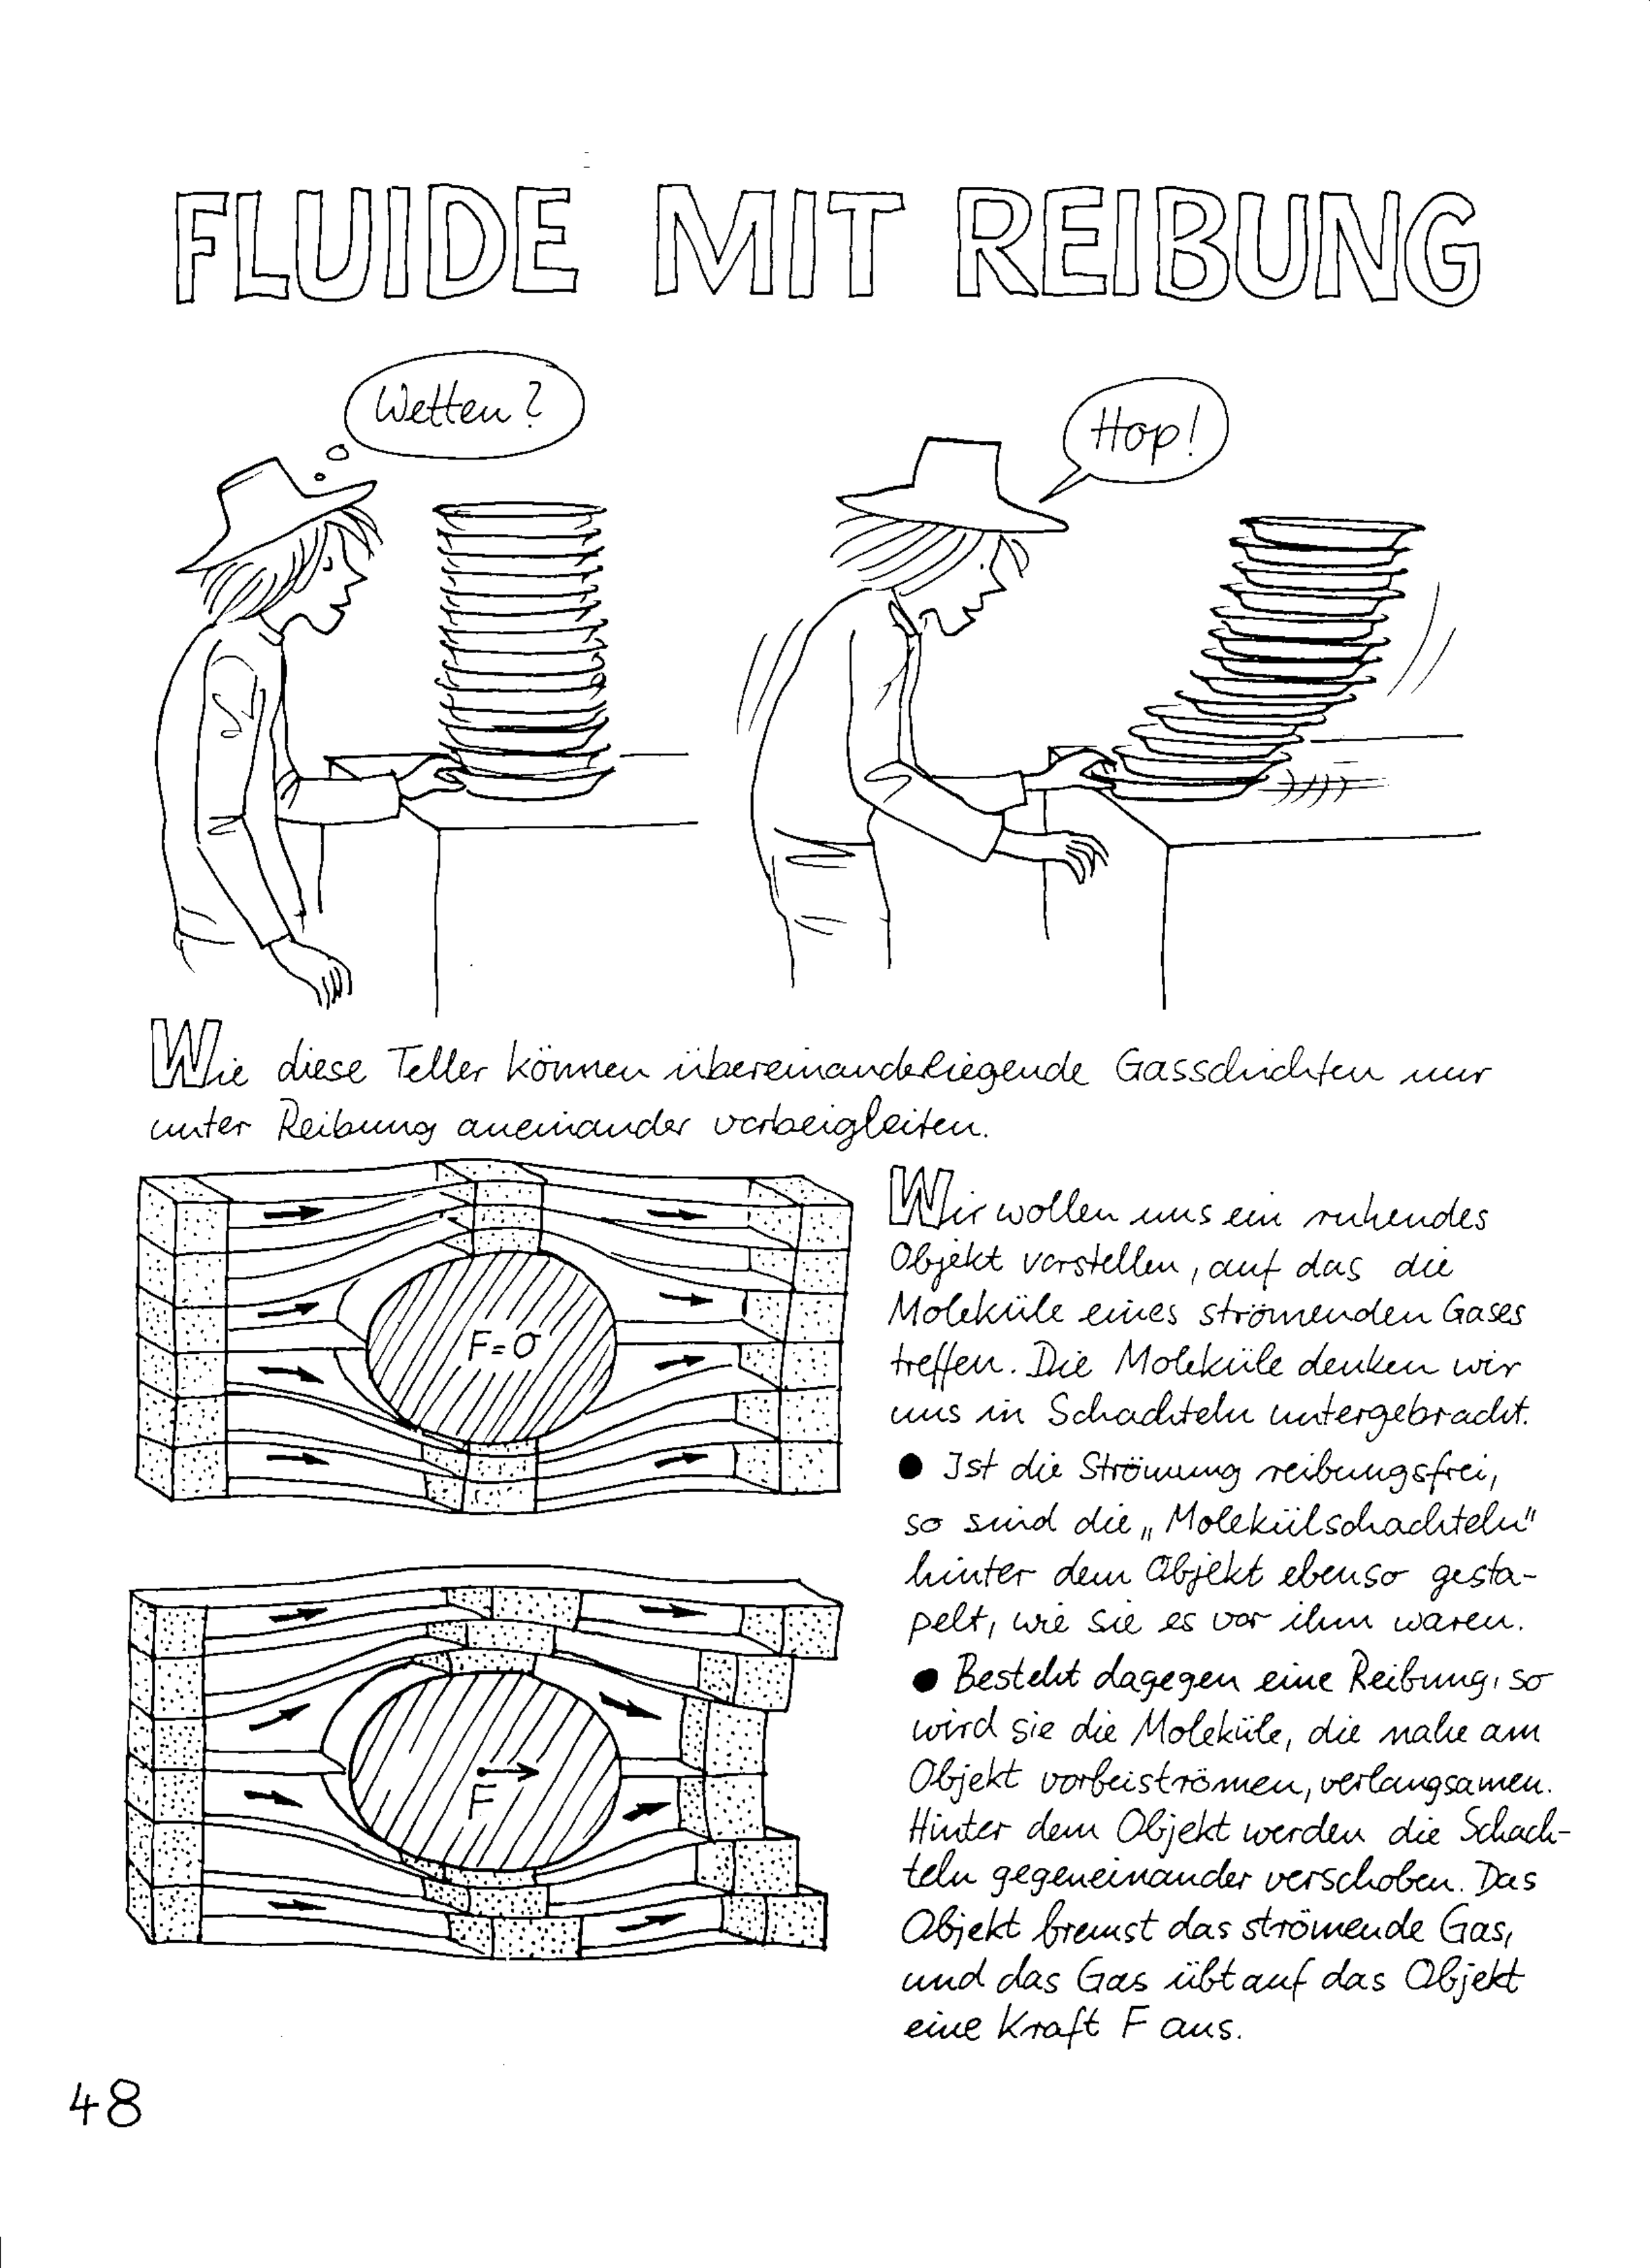 FLUIDE MIT REIBUNG
Wetten?
Hop!
Wie diese Teller können übereinanderliegende Gasschichten nur
unter Reibung aneinander vorbeigleiten.
F=0
F
Wir wollen uns ein ruhendes
Objekt vorstellen, auf das die
Moleküle eines strömenden Gases
treffen. Die Moleküle denken wir
uns in Schachteln untergebracht.
● Ist die Strömung reibungsfrei,
so sind die „Molekülschachteln"
hinter dem Objekt ebenso gesta-
pelt, wie sie es vor ihm waren.
● Besteht dagegen eine Reibung, so
wird sie die Moleküle, die nahe am
Objekt vorbeiströmen, verlangsamen.
Hinter dem Objekt werden die Schach-
teln gegeneinander verschoben. Das
Objekt bremst das strömende Gas,
und das Gas übt auf das Objekt
eine Kraft F aus.
48